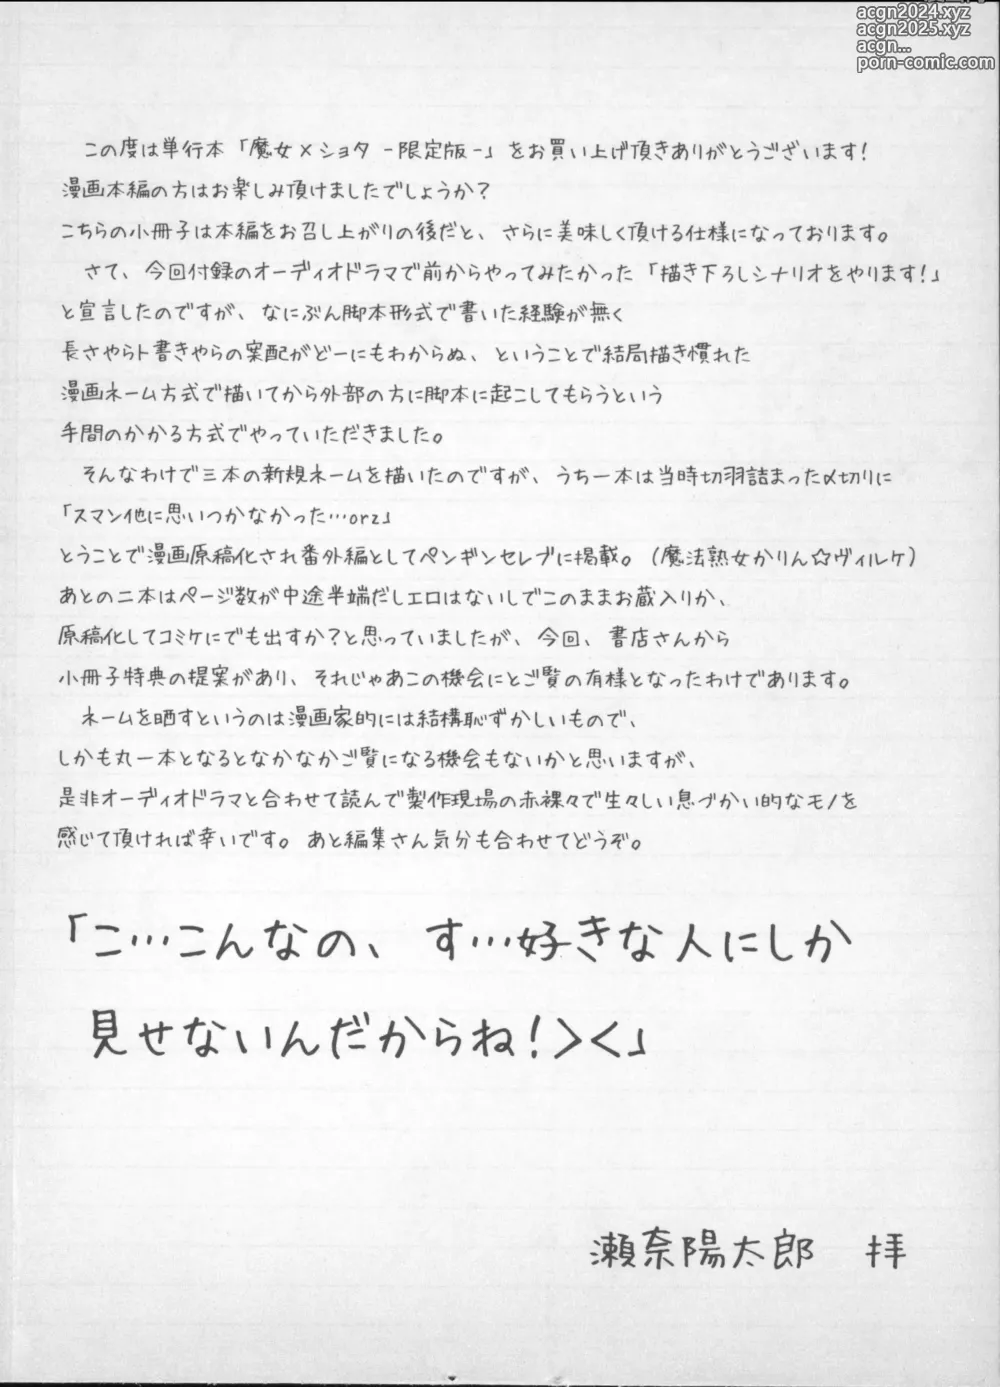 acgn2024.xyz
acgn2025.xyz
acgn...
porn-comic.com
この度は単行本「魔女×ショタ -限定版-」をお買い上げ頂きありがとうございます!
漫画本編の方はお楽しみ頂けましたでしょうか?
こちらの小冊子は本編をお召し上がりの後だと、さらに美味しく頂ける仕様になっております。
さて、今回付録のオーディオドラマで前からやってみたかった「描き下ろしシナリオをやります!」
と宣言したのですが、なにぶん脚本形式で書いた経験が無く
長さやらト書きやらの案配がどーにもわからぬ、ということで結局描き慣れた
漫画ネーム方式で描いてから外部の方に脚本に起こしてもらうという
手間のかかる方式でやっていただきました。
そんなわけで三本の新規ネームを描いたのですが、うち一本は当時切羽詰まった〆切りに
「スマン他に思いつかなかった…orz」
とうことで漫画原稿化され番外編としてペンギンセレブに掲載。(魔法熟女かりん☆ヴィルケ)
あとの二本はページ数が中途半端だしエロはないしでこのままお蔵入りか、
原稿化してコミケにでも出すか?と思っていましたが、今回、書店さんから
小冊子特典の提案があり、それじゃあこの機会にとご覧の有様となったわけであります。
ネームを晒すというのは漫画家的には結構恥ずかしいもので、
しかも丸一本となるとなかなかご覧になる機会もないかと思いますが、
是非オーディオドラマと合わせて読んで製作現場の赤裸々で生々しい息づかい的なモノを
感じて頂ければ幸いです。あと編集さん気分も合わせてどうぞ。
「こ…こんなの、す…好きな人にしか
見せないんだからね!＞＜」
瀬奈陽太郎 拝